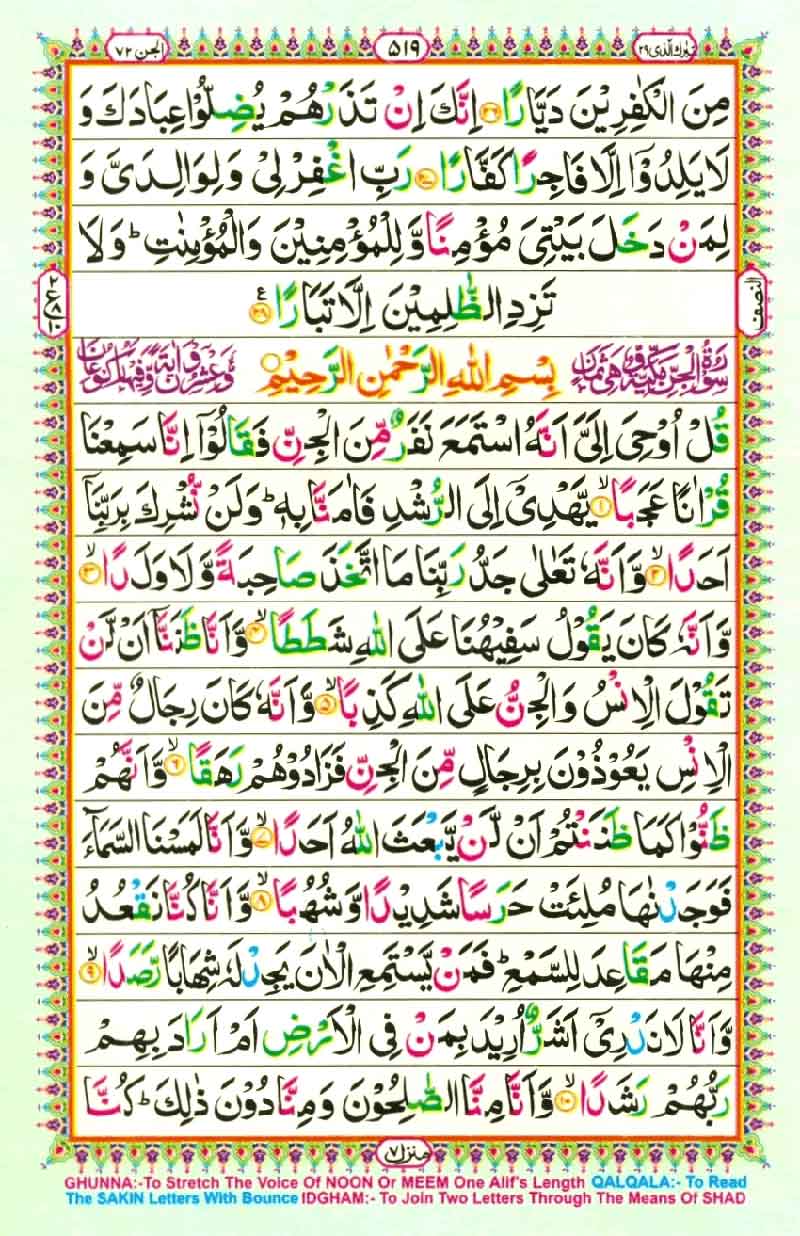 تبٰرك الذی ۲۹ ۵۱۹ الجن ۷۲
مِنَ الْكٰفِرِیْنَ دَیَّارًا ۲۶ اِنَّكَ اِنْ تَذَرْهُمْ یُضِلُّوْا عِبَادَكَ وَ
لَا یَلِدُوْۤا اِلَّا فَاجِرًا كَفَّارًا ۲۷ رَبِّ اغْفِرْ لِیْ وَ لِوَالِدَیَّ وَ
لِمَنْ دَخَلَ بَیْتِیَ مُؤْمِنًا وَّ لِلْمُؤْمِنِیْنَ وَ الْمُؤْمِنٰتِ ؕ وَ لَا
النصف
تَزِدِ الظّٰلِمِیْنَ اِلَّا تَبَارًا ۲۸ ع
سُوْرَةُ الْجِنِّ مَكِّیَّةٌ وَّ هِیَ ثَمَانٍ بِسْمِ اللّٰهِ الرَّحْمٰنِ الرَّحِیْمِ وَّ عِشْرُوْنَ اٰیَةً وَّ فِیْهَا رُكُوْعَانِ
قُلْ اُوْحِیَ اِلَیَّ اَنَّهُ اسْتَمَعَ نَفَرٌ مِّنَ الْجِنِّ فَقَالُوْۤا اِنَّا سَمِعْنَا
قُرْاٰنًا عَجَبًا ۙ۱ یَّهْدِیْۤ اِلَی الرُّشْدِ فَاٰمَنَّا بِهٖ ؕ وَ لَنْ نُّشْرِكَ بِرَبِّنَاۤ
اَحَدًا ۙ۲ وَّ اَنَّهٗ تَعٰلٰی جَدُّ رَبِّنَا مَا اتَّخَذَ صَاحِبَةً وَّ لَا وَلَدًا ۙ۳
وَّ اَنَّهٗ كَانَ یَقُوْلُ سَفِیْهُنَا عَلَی اللّٰهِ شَطَطًا ۙ۴ وَّ اَنَّا ظَنَنَّاۤ اَنْ لَّنْ
تَقُوْلَ الْاِنْسُ وَ الْجِنُّ عَلَی اللّٰهِ كَذِبًا ۙ۵ وَّ اَنَّهٗ كَانَ رِجَالٌ مِّنَ
الْاِنْسِ یَعُوْذُوْنَ بِرِجَالٍ مِّنَ الْجِنِّ فَزَادُوْهُمْ رَهَقًا ۙ۶ وَّ اَنَّهُمْ
ظَنُّوْا كَمَا ظَنَنْتُمْ اَنْ لَّنْ یَّبْعَثَ اللّٰهُ اَحَدًا ۙ۷ وَّ اَنَّا لَمَسْنَا السَّمَآءَ
فَوَجَدْنٰهَا مُلِئَتْ حَرَسًا شَدِیْدًا وَّ شُهُبًا ۙ۸ وَّ اَنَّا كُنَّا نَقْعُدُ
مِنْهَا مَقَاعِدَ لِلسَّمْعِ ؕ فَمَنْ یَّسْتَمِعِ الْاٰنَ یَجِدْ لَهٗ شِهَابًا رَّصَدًا ۙ۹
وَّ اَنَّا لَا نَدْرِیْۤ اَشَرٌّ اُرِیْدَ بِمَنْ فِی الْاَرْضِ اَمْ اَرَادَ بِهِمْ
رَبُّهُمْ رَشَدًا ۙ۱۰ وَّ اَنَّا مِنَّا الصّٰلِحُوْنَ وَ مِنَّا دُوْنَ ذٰلِكَ ؕ كُنَّا
منزل ۷
GHUNNA:-To Stretch The Voice Of NOON Or MEEM One Alif's Length QALQALA:- To Read
The SAKIN Letters With Bounce IDGHAM:- To Join Two Letters Through The Means Of SHAD